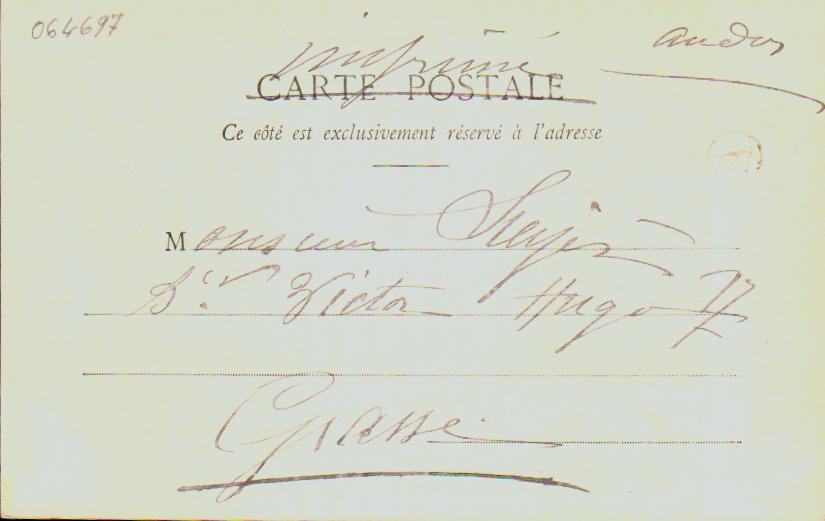 064697
andon
imprimé
CARTE POSTALE
Ce côté est exclusivement réservé à l'adresse
A
Monsieur
Bd Victor Hugo 17
Grasse